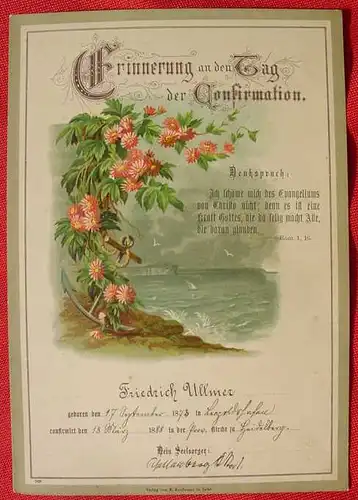 Erinnerung an den Tag
der Confirmation.
Denkspruch:
Ich schäme mich des Evangeliums
von Christo nicht; denn es ist eine
Kraft Gottes, die da selig macht Alle,
die daran glauben.
Röm. 1, 16.
Friedrich Ullmer
geboren den 17 September 1873 in Leopoldshafen
confirmirt den 18 März 1888 in der Prov. Kirche zu Heidelberg.
Dein Seelsorger:
Verlag von E. Kaufmann in Lahr